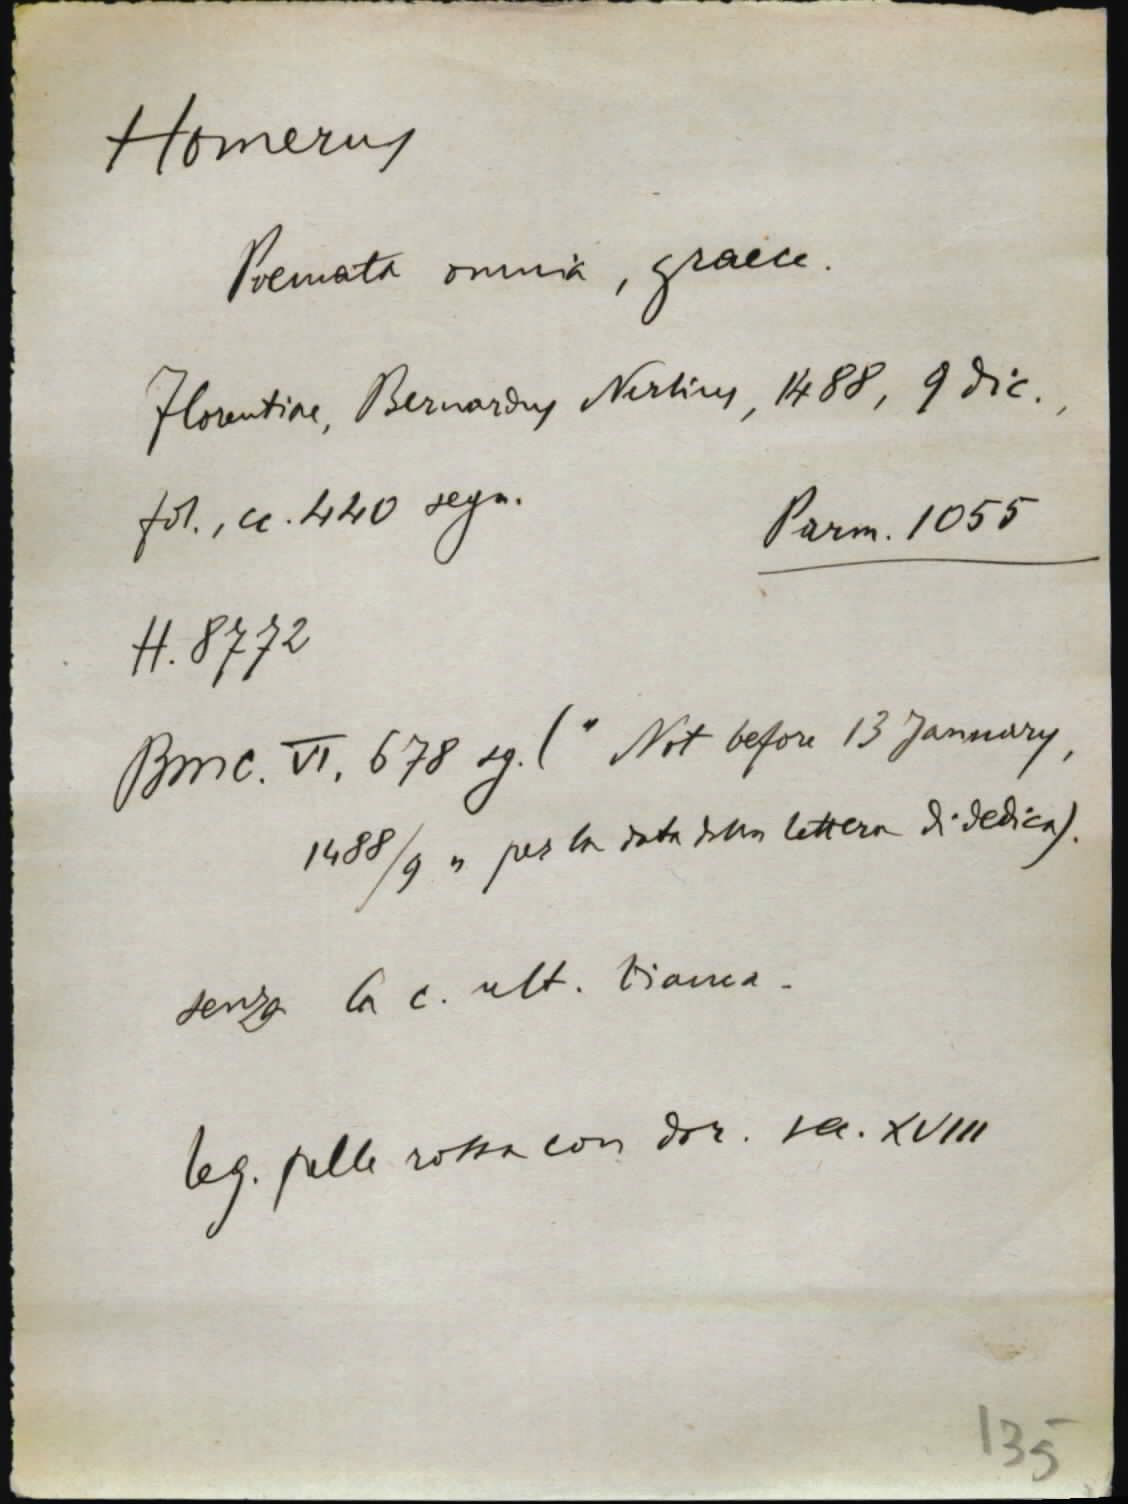 Homerus
Poemata omnia, graece.
Florentiae, Bernardus Nerlius, 1488, 9 dic.,
fol., cc. 440 segn.
Parm. 1055
H. 8772
BMC. VI, 678 sg. (" Not before 13 January,
1488/9 " per la data della lettera di dedica).
senza la c. ult. bianca -
leg. pelle rossa con dor. sec. XVIII
135